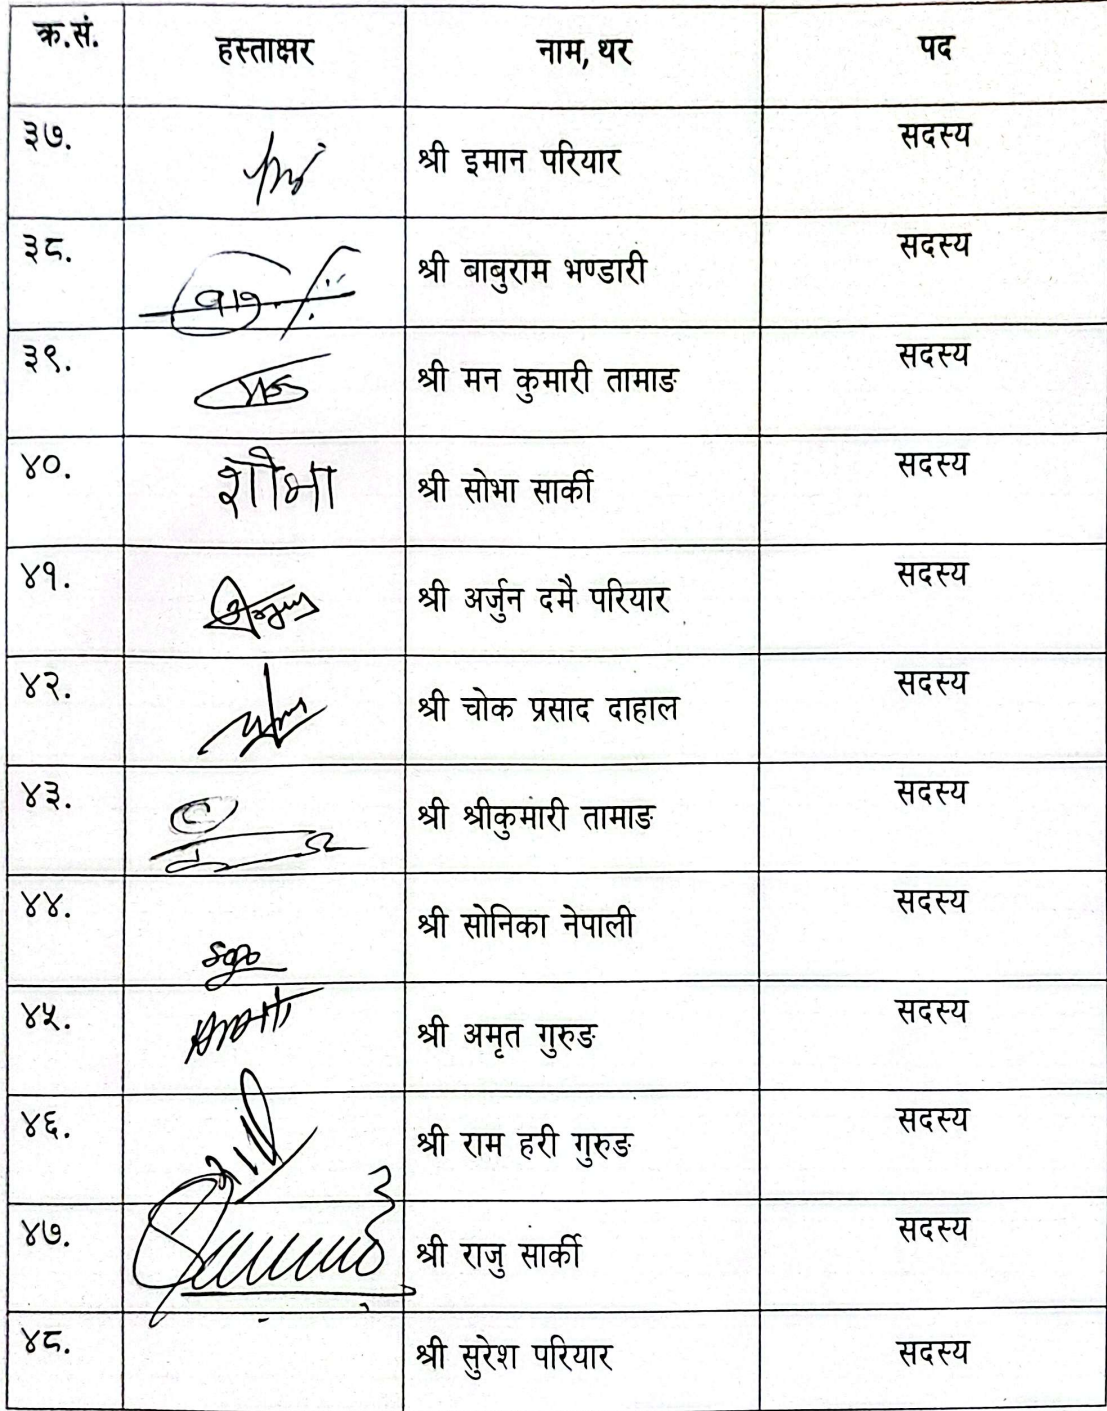 क्र.सं. हस्ताक्षर नाम, थर पद
३७. श्री इमान परियार सदस्य
३८. श्री बाबुराम भण्डारी सदस्य
३९. श्री मन कुमारी तामाङ सदस्य
४०. शोभा श्री सोभा सार्की सदस्य
४१. श्री अर्जुन दमै परियार सदस्य
४२. श्री चोक प्रसाद दाहाल सदस्य
४३. श्री श्रीकुमारी तामाङ सदस्य
४४. श्री सोनिका नेपाली सदस्य
४५. श्री अमृत गुरुङ सदस्य
४६. श्री राम हरी गुरुङ सदस्य
४७. श्री राजु सार्की सदस्य
४८. श्री सुरेश परियार सदस्य